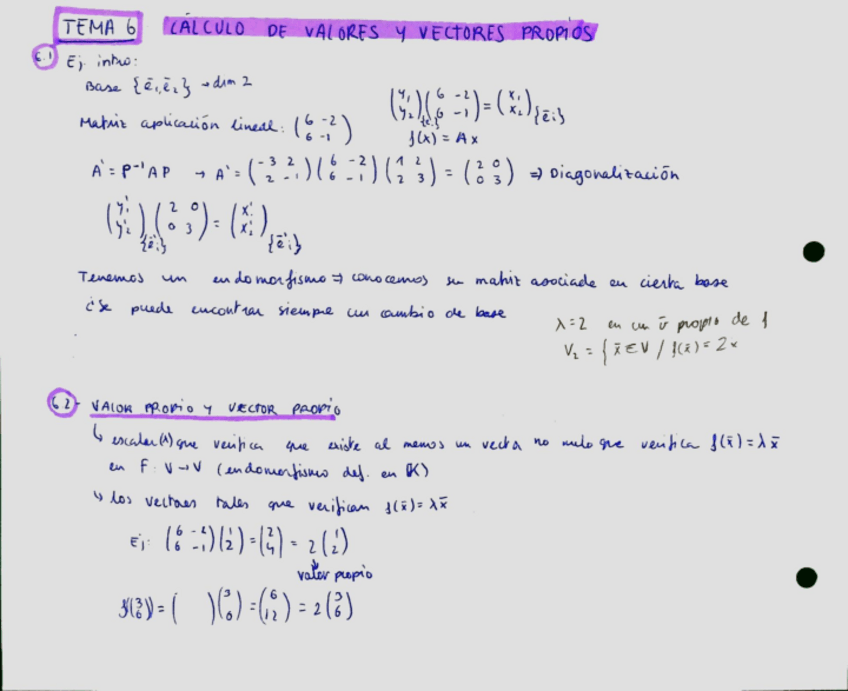 TEMA 6 CÁLCULO DE VALORES Y VECTORES PROPIOS
6.1 Ej. intro:
Base {ē₁,ē₂} → dim 2
Matriz aplicación lineal: (6 -2; 6 -1)
(y₁; y₂)(6 -2; 6 -1) = (x₁; x₂){ēi}
f(x) = Ax
A' = P⁻¹AP → A' = (-3 2; 2 -1)(6 -2; 6 -1)(1 2; 2 3) = (2 0; 0 3) ⇒ Diagonalización
(y₁'; y₂'){ē'i}(2 0; 0 3) = (x₁'; x₂'){ē'i}
Tenemos un endomorfismo ⇒ conocemos su matriz asociada en cierta base
¿Se puede encontrar siempre un cambio de base
λ=2 en un v̄ propio de f
V₂ = { x̄ ∈ V / f(x̄) = 2x
6.2 VALOR PROPIO Y VECTOR PROPIO
↳ escalar (λ) que verifica que existe al menos un vector no nulo que verifica f(x̄) = λx̄
en F: V→V (endomorfismo def. en K)
↳ los vectores tales que verifican f(x̄) = λx̄
Ej: (6 -2; 6 -1)(1; 2) = (2; 4) = 2(1; 2)
valor propio
f(3; 6) = ( )(3; 6) = (6; 12) = 2(3; 6)